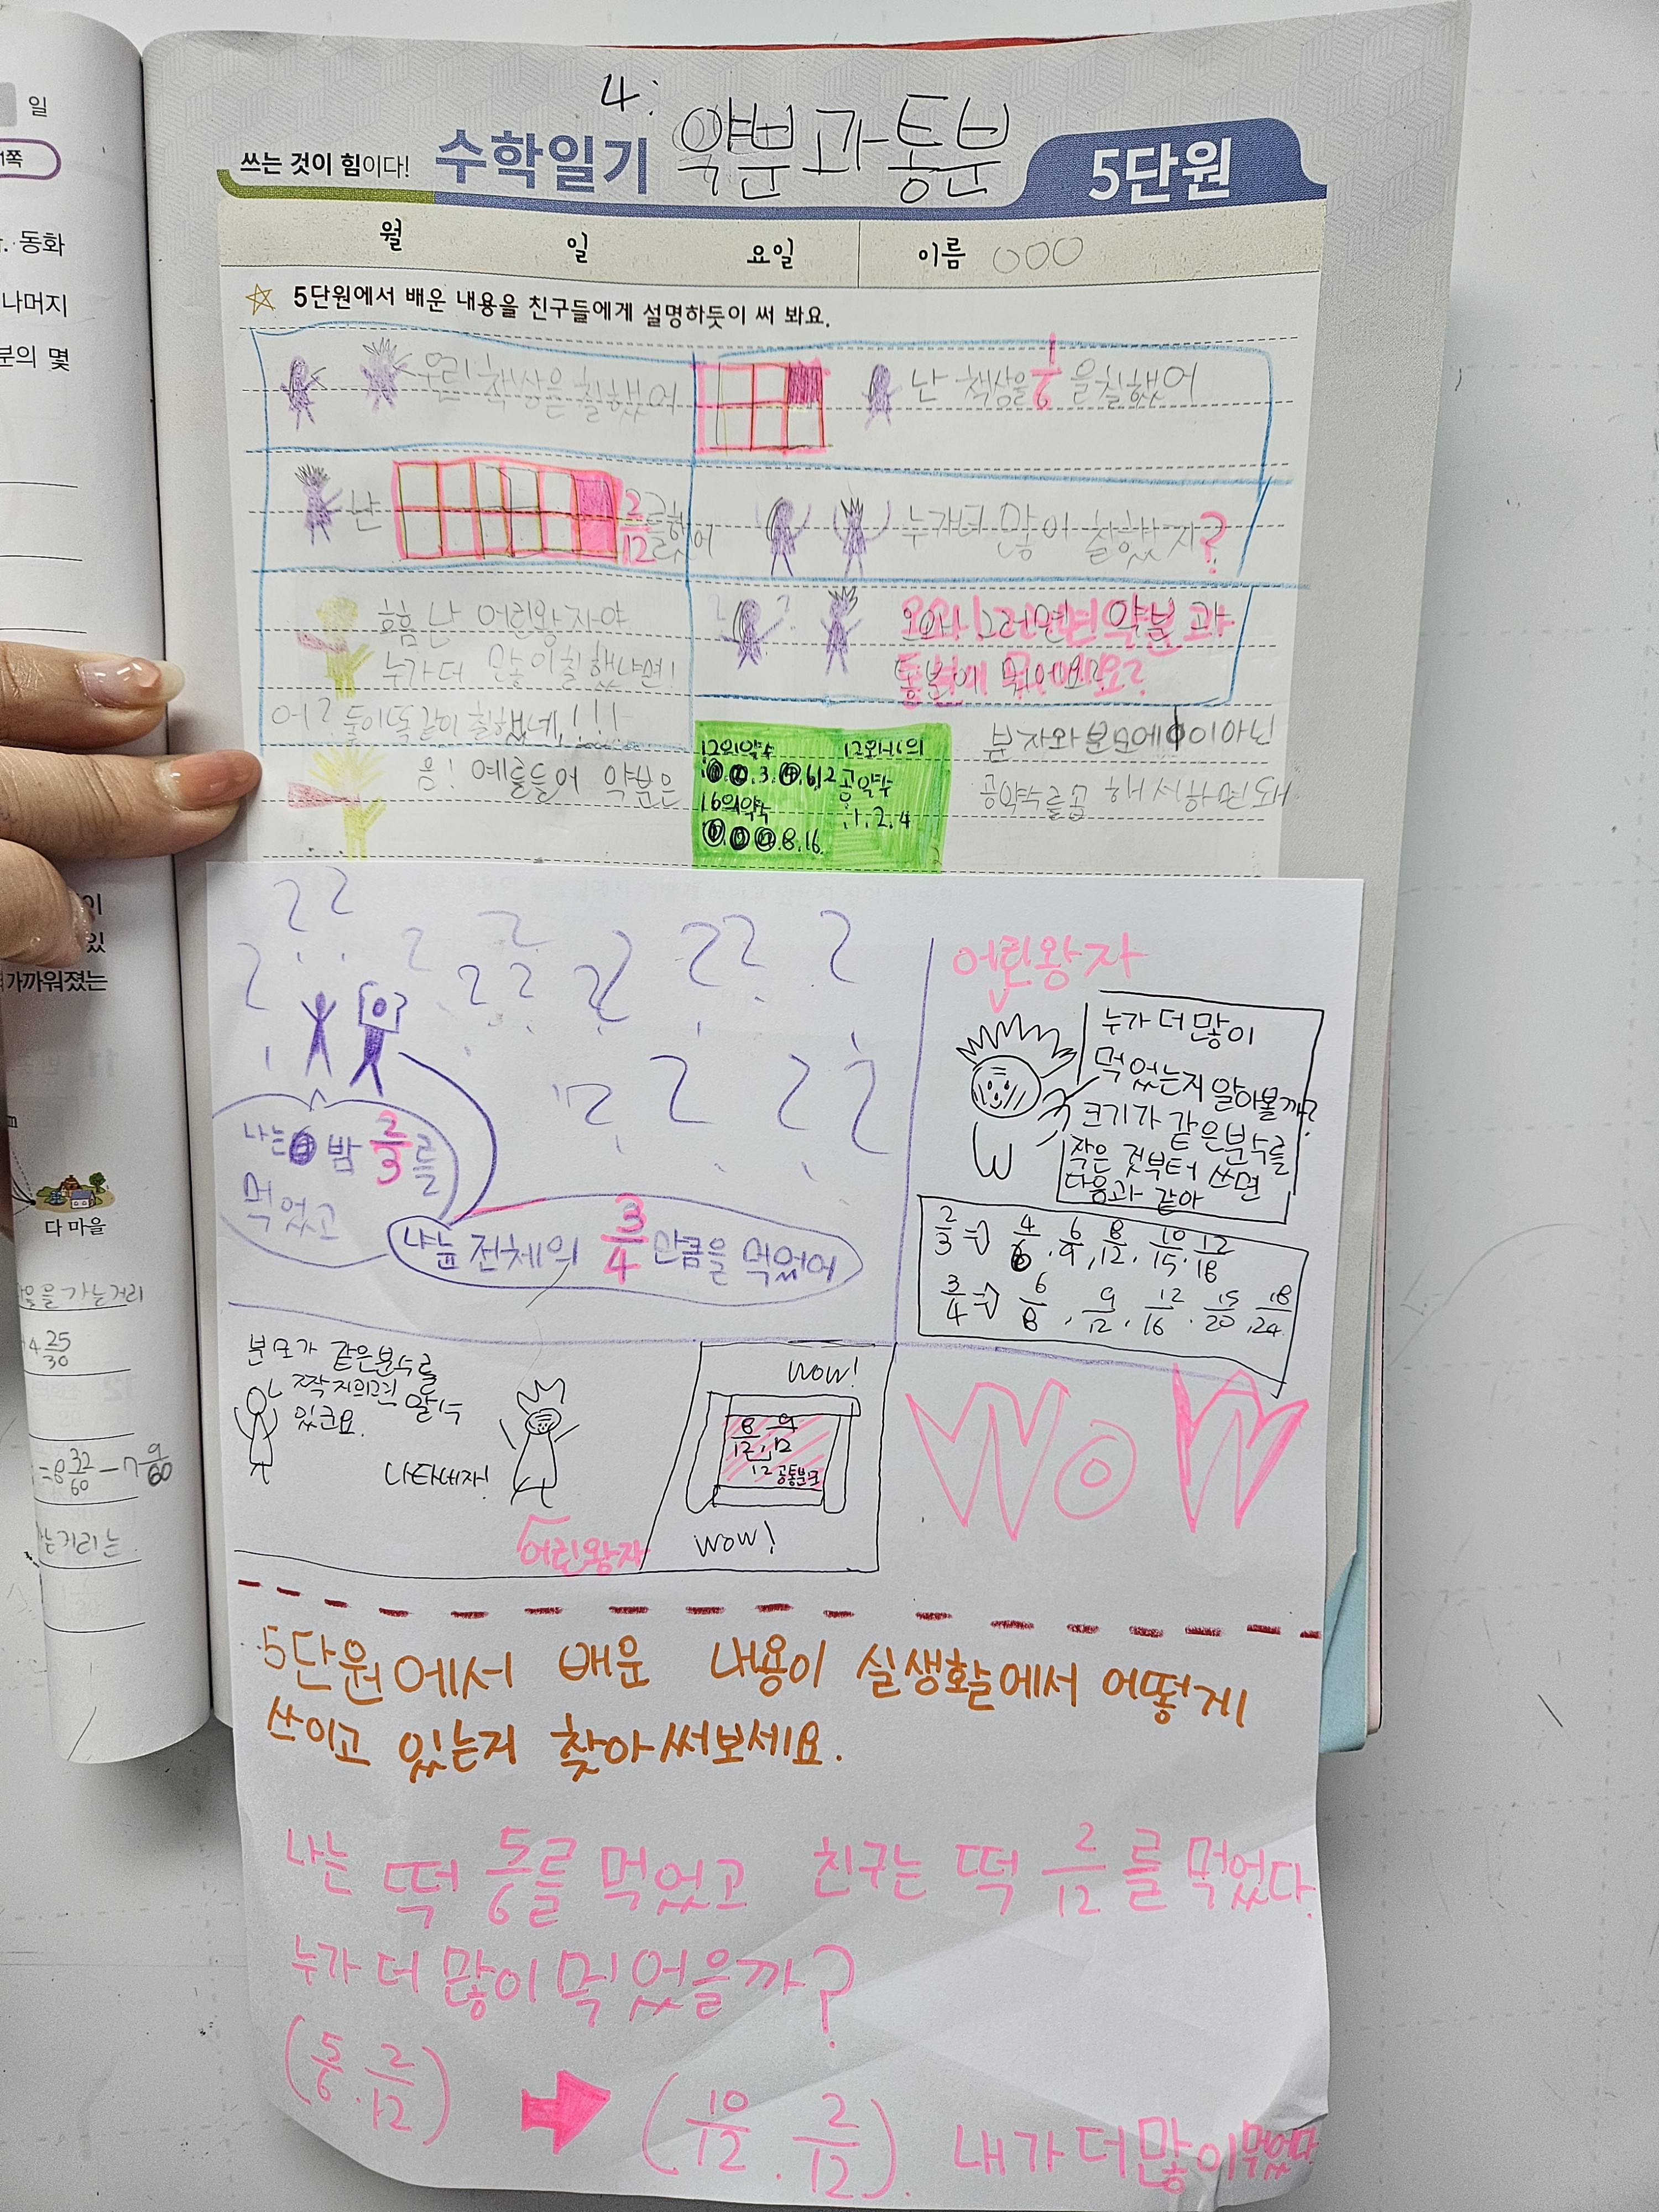 일
쪽
동화
나머지
분의 몇
있
가까워졌는
다 마을
가는거리
4 25/30
=8 32/60 - 7 9/60
는거리는
4. 약분과 통분
쓰는 것이 힘이다! 수학일기 5단원
월 일 요일 이름 ○○○
5단원에서 배운 내용을 친구들에게 설명하듯이 써 봐요.
우린 책상을 칠했어
난 책상을 1/6 을 칠했어
난 2/12를 했어
누가 더 많이 칠했지?
흠 난 어린왕자야
누가 더 많이 칠했냐면!
어? 둘이 똑같이 칠했네!!!
오오! 그러면 약분 과
통분이 뭐에요?
음! 예를들어 약분은
12의약수
1, 2, 3, 4, 6, 12
16의약수
1, 2, 4, 8, 16
12와 16의
공약수
1, 2, 4
분자와 분모에 1이 아닌
나는 밤 2/3를
먹었고
나는 전체의 3/4 만큼을 먹었어
어린왕자
누가 더 많이
먹었는지 알아볼까?
크기가 같은 분수를
작은 것부터 쓰면
다음과 같아
2/3 ⇒ 4/6, 6/9, 8/12, 10/15, 12/18
3/4 ⇒ 6/8, 9/12, 12/16, 15/20, 18/24
분모가 같은 분수를
있군요.
나타내자!
어린왕자
wow!
8/12, 9/12
12 공통분모
wow!
WOW
5단원에서 배운 내용이 실생활에서 어떻게
쓰이고 있는지 찾아 써보세요.
나는 떡 5/6를 먹었고 친구는 떡 2/12 를 먹었다.
누가 더 많이 먹었을까?
(5/6, 2/12) ➡ (10/12, 2/12). 내가 더 많이 먹었다.